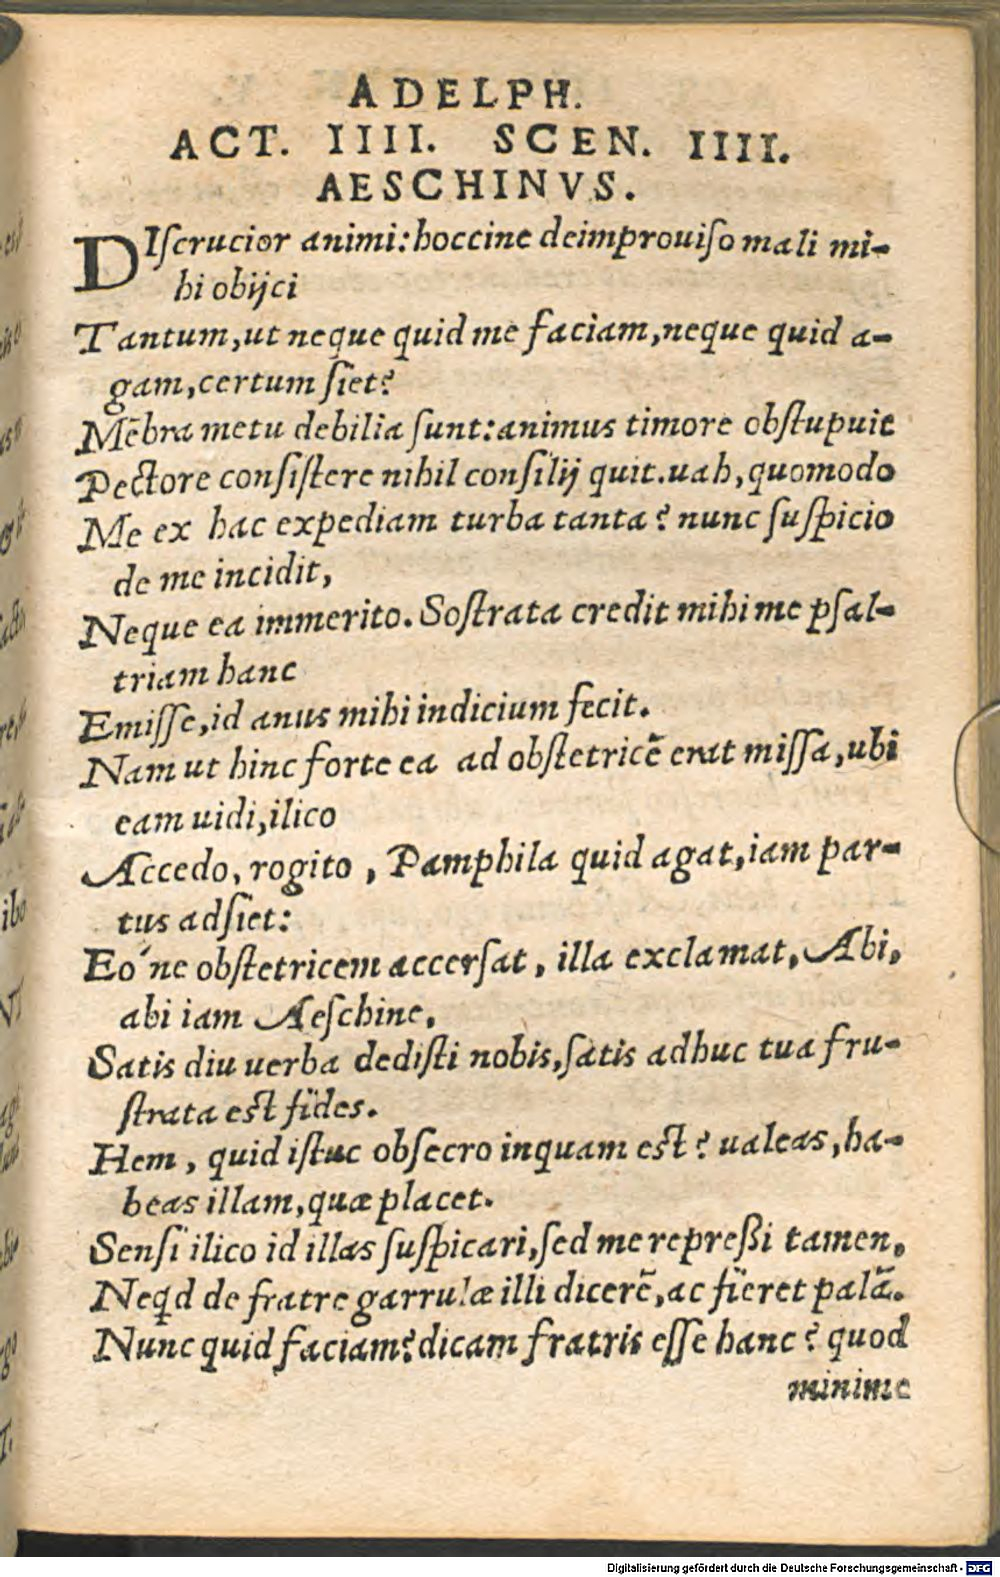 ADELPH.
ACT. IIII. SCEN. IIII.
AESCHINVS.
DIſcrucior animi: hoccine deimprouiſo mali mi-
hi obijci
Tantum, ut neque quid me faciam, neque quid a-
gam, certum ſiet?
Mēbra metu debilia ſunt: animus timore obſtupuit
Pectore conſiſtere nihil conſilij quit. uah, quomodo
Me ex hac expediam turba tanta? nunc ſuſpicio
de me incidit,
Neque ea immerito. Soſtrata credit mihi me pſal-
triam hanc
Emiſſe, id anus mihi indicium fecit.
Nam ut hinc forte ea ad obſtetricē erat miſſa, ubi
eam uidi, ilico
Accedo, rogito, Pamphila quid agat, iam par-
tus adſiet:
Eo´ne obſtetricem accerſat, illa exclamat, Abi,
abi iam Aeſchine,
Satis diu uerba dediſti nobis, ſatis adhuc tua fru-
ſtrata eſt fides.
Hem, quid iſtuc obſecro inquam eſt? ualeas, ha-
beas illam, quæ placet.
Senſi ilico id illas ſuſpicari, ſed me repreßi tamen,
Neqd de fratre garrulæ illi dicerē, ac fieret palā.
Nunc quid faciam? dicam fratris eſſe hanc? quod
minime
Digitalisierung gefördert durch die Deutsche Forschungsgemeinschaft - DFG